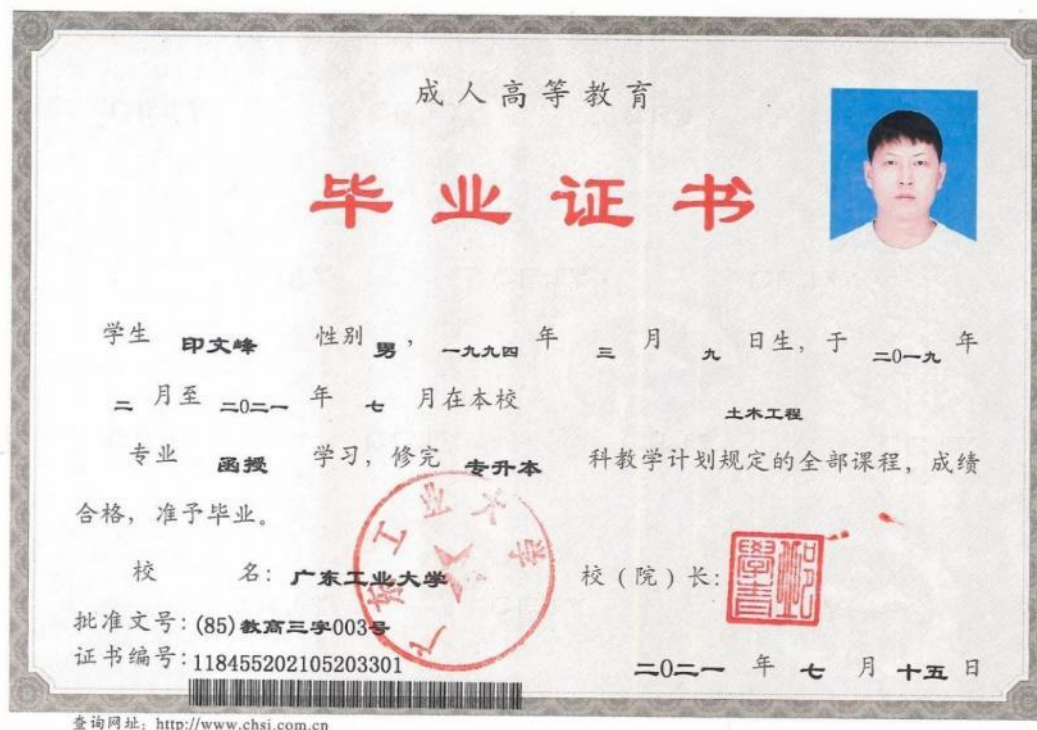 成人高等教育
毕业证书
学生 印文峰 性别 男， 一九九四 年 三 月 九 日生，于 二0一九 年
二 月至 二0二一 年 七 月在本校 土木工程
专业 函授 学习，修完 专升本 科教学计划规定的全部课程，成绩
合格，准予毕业。
广东工业大学
校 名：广东工业大学 校（院）长：
批准文号：(85)教高三字003号
证书编号：118455202105203301
二0二一 年 七 月 十五 日
查询网址：http://www.chsi.com.cn